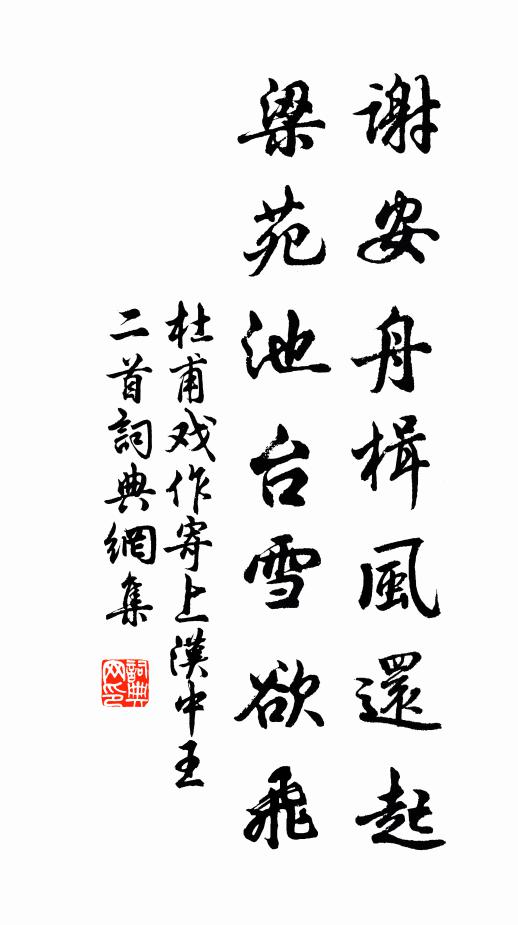 謝安舟楫風還起
梁苑池台雪欲飛
杜甫戏作寄上漢中王
二首詞典網集
詞典网印